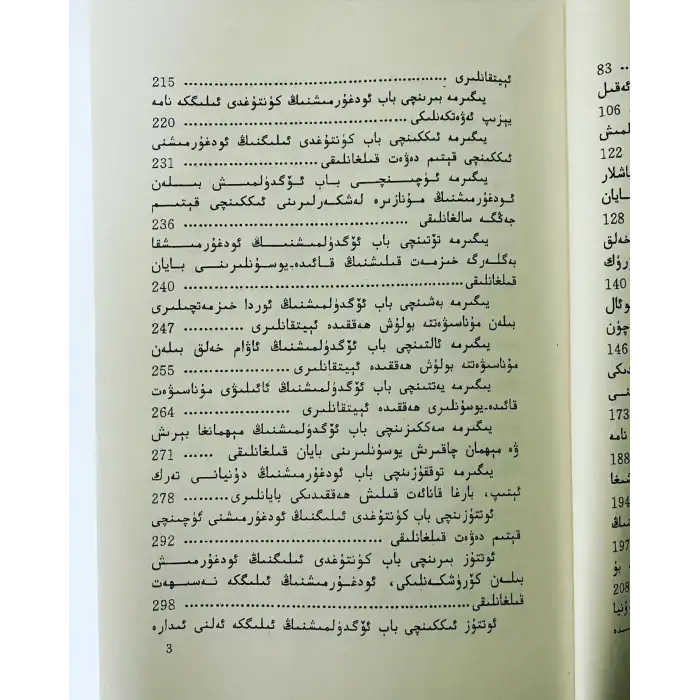 ئېيتقانلىرى ............ 215
يىگىرمە بىرىنچى باب ئودغۇرمىشنىڭ كۈنتۇغدى ئىلىگكە نامە
يېزىپ ئەۋەتكەنلىكى ............ 220
يىگىرمە ئىككىنچى باب كۈنتۇغدى ئىلىگنىڭ ئودغۇرمىشنى
ئىككىنچى قېتىم دەۋەت قىلغانلىقى ............ 231
يىگىرمە ئۈچىنچى باب ئۆگدۈلمىش بىلەن
ئودغۇرمىشنىڭ مۇنازىرە لەشكەرلىرىنى ئىككىنچى قېتىم
جەڭگە سالغانلىقى ............ 236
يىگىرمە تۆتىنچى باب ئۆگدۈلمىشنىڭ ئودغۇرمىشقا
بەگلەرگە خىزمەت قىلىشنىڭ قائىدە-يوسۇنلىرىنى بايان
قىلغانلىقى ............ 240
يىگىرمە بەشىنچى باب ئۆگدۈلمىشنىڭ ئوردا خىزمەتچىلىرى
بىلەن مۇناسىۋەتتە بولۇش ھەققىدە ئېيتقانلىرى ............ 247
يىگىرمە ئالتىنچى باب ئۆگدۈلمىشنىڭ ئاۋام خەلق بىلەن
مۇناسىۋەتتە بولۇش ھەققىدە ئېيتقانلىرى ............ 255
يىگىرمە يەتتىنچى باب ئۆگدۈلمىشنىڭ ئائىلىۋى مۇناسىۋەت
قائىدە-يوسۇنلىرى ھەققىدە ئېيتقانلىرى ............ 264
يىگىرمە سەككىزىنچى باب ئۆگدۈلمىشنىڭ مېھمانغا بېرىش
ۋە مېھمان چاقىرىش يوسۇنلىرىنى بايان قىلغانلىقى ...... 271
يىگىرمە توققۇزىنچى باب ئودغۇرمىشنىڭ دۇنيانى تەرك
ئېتىپ، بارغا قانائەت قىلىش ھەققىدىكى بايانلىرى .......... 278
ئوتتۇزىنچى باب كۈنتۇغدى ئىلىگنىڭ ئودغۇرمىشنى ئۈچىنچى
قېتىم دەۋەت قىلغانلىقى ............ 292
ئوتتۇز بىرىنچى باب كۈنتۇغدى ئىلىگنىڭ ئودغۇرمىش
بىلەن كۆرۈشكەنلىكى، ئودغۇرمىشنىڭ ئىلىگكە نەسىھەت
قىلغانلىقى ............ 298
ئوتتۇز ئىككىنچى باب ئۆگدۈلمىشنىڭ ئىلىگكە ئەلنى ئىدارە
3
83
ئەقىل
106
122
بايان
128
خەلق
140
146
173
نامە
188
194
197
بۇ
208